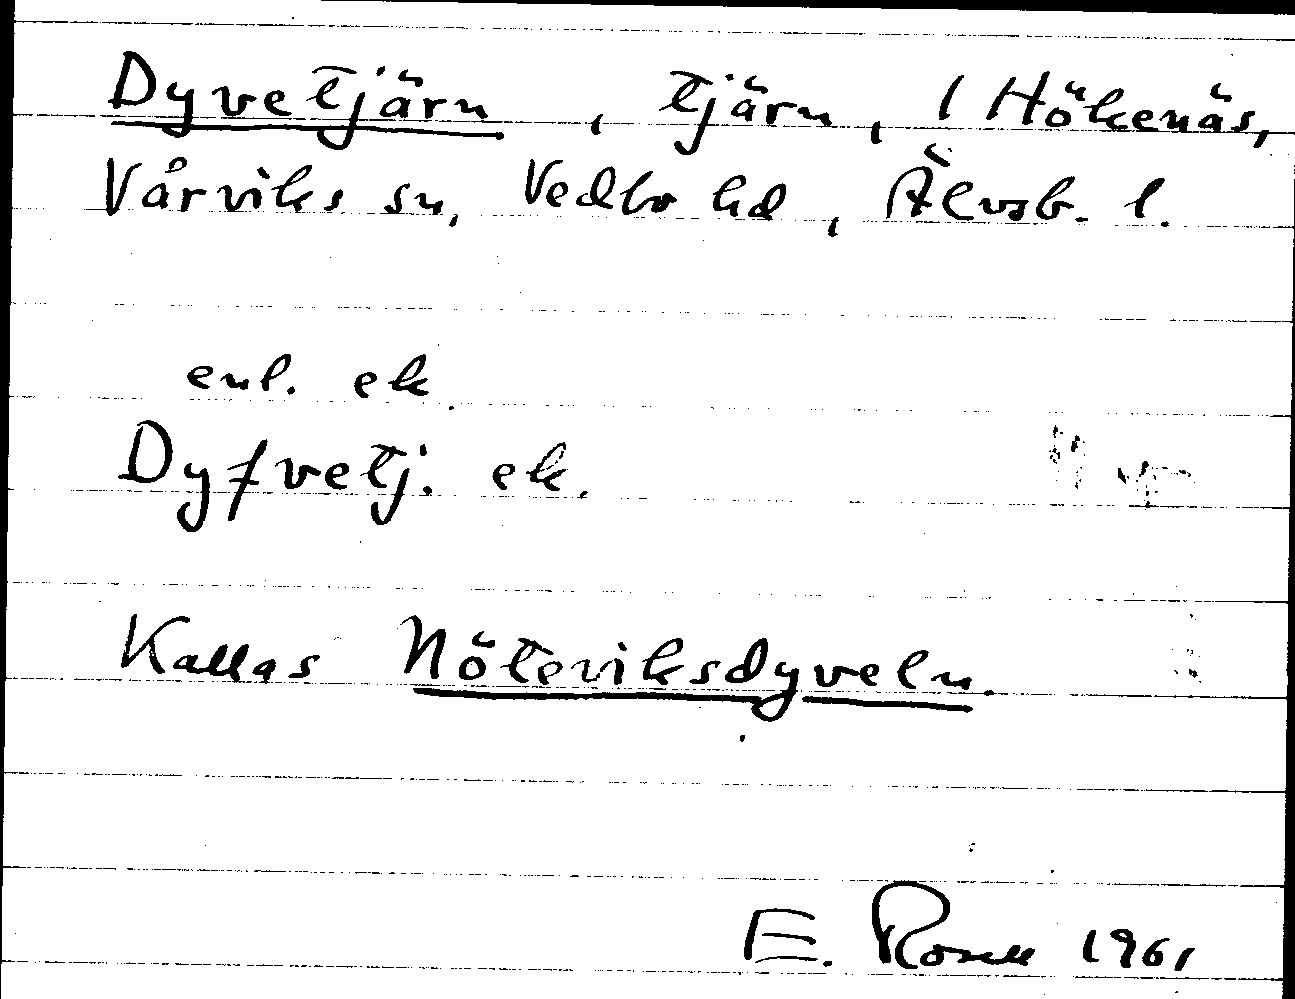 Dyvetjärn, tjärn, 1 Hökenäs,
Vårviks sn, Vedbo hd, Älvsb. l.
enl. ek.
Dyfvetj. ek.
Kallas Nöteviksdyveln.
E. Rosell 1961